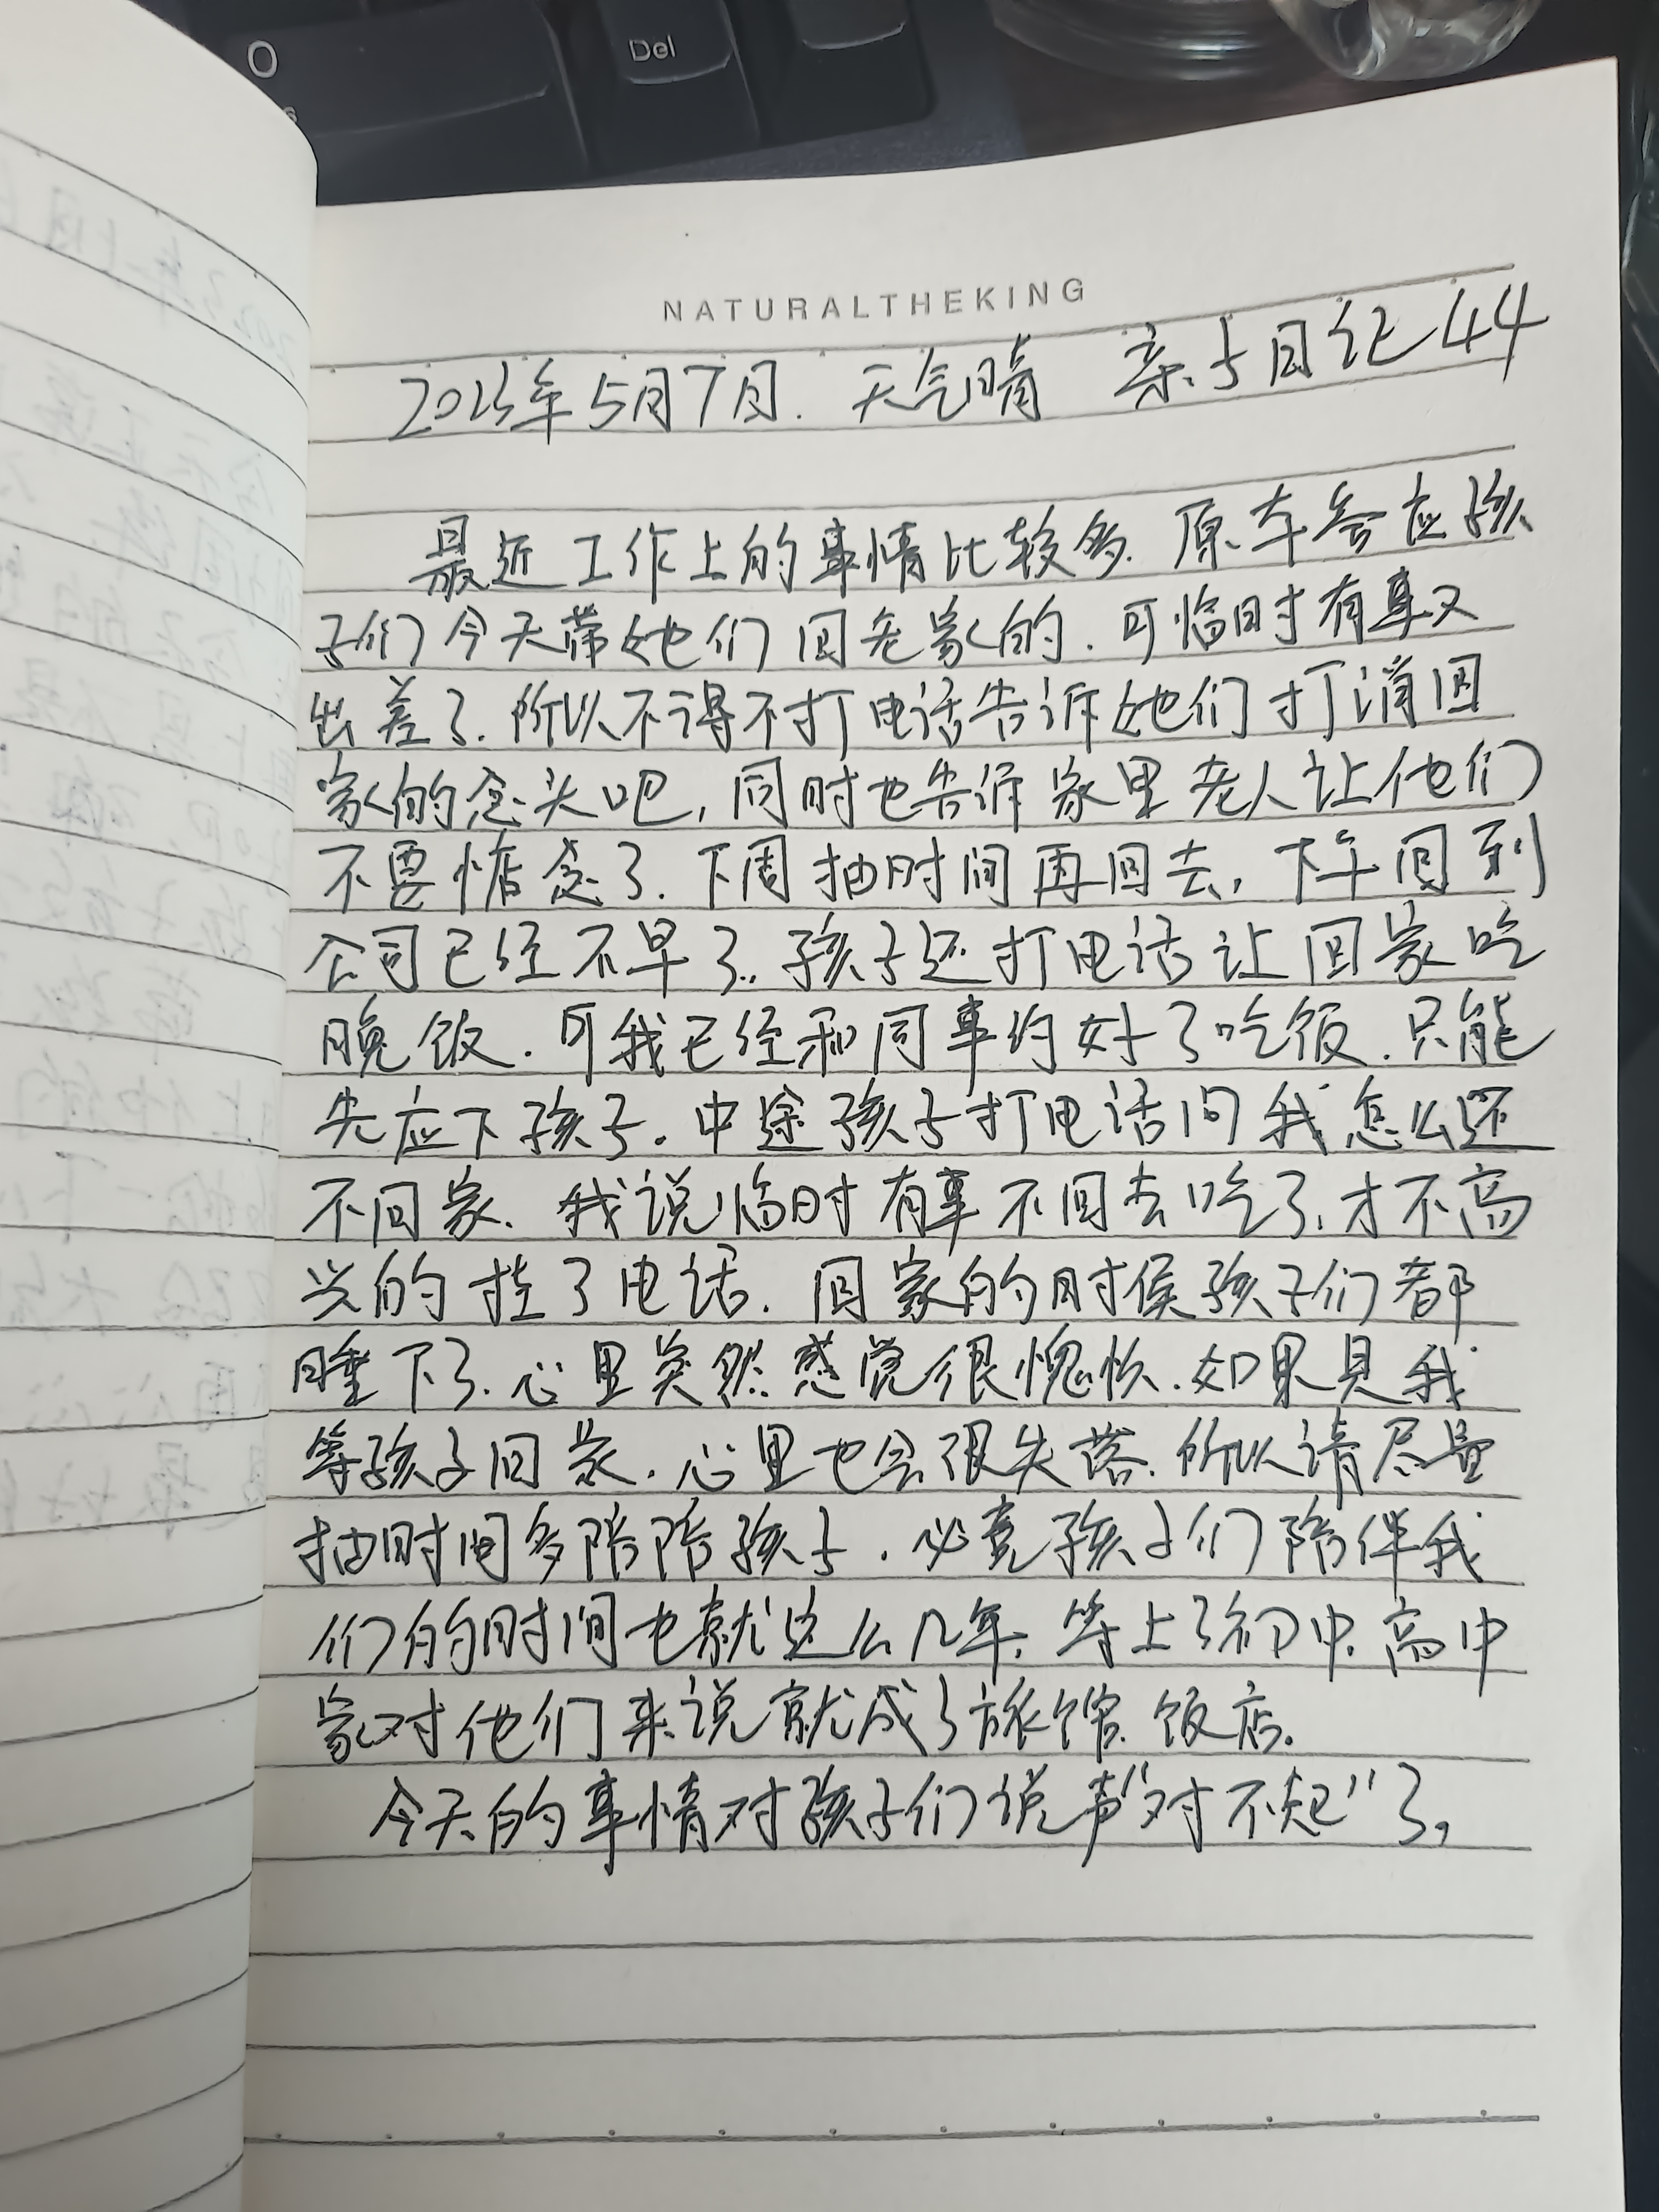 O
Del
NATURALTHEKING
2023年5月7日. 天气晴 亲子日记44
最近工作上的事情比较多. 原本答应孩
子们今天带她们回老家的. 可临时有事又
出差了. 所以不得不打电话告诉她们打消回
家的念头吧, 同时也告诉家里老人让他们
不要惦念了. 下周抽时间再回去, 下午回到
公司已经不早了. 孩子还打电话让回家吃
晚饭. 可我已经和同事约好了吃饭. 只能
先应下孩子. 中途孩子打电话问我怎么还
不回家. 我说临时有事不回去吃了, 才不高
兴的挂了电话. 回家的时候孩子们都
睡下了. 心里突然感觉很愧疚. 如果是我
等孩子回家. 心里也会很失落. 所以请尽量
抽时间多陪陪孩子. 必竟孩子们陪伴我
们的时间也就这么几年, 等上了初中. 高中
家对他们来说就成了旅馆. 饭店.
今天的事情对孩子们说声“对不起”了,